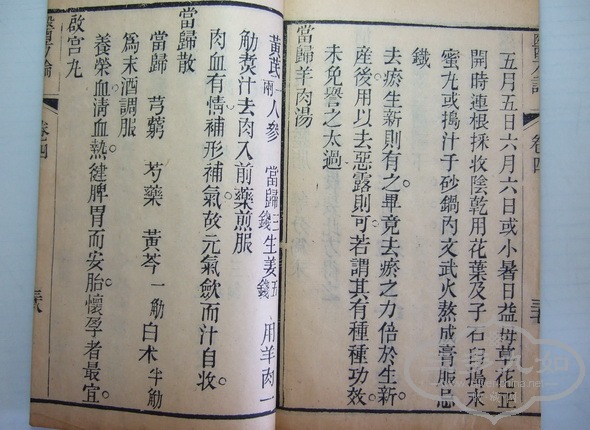 五月五日六月六日或小暑日益母草花正
開時連根採收陰乾用花葉及子石臼搗末
蜜丸或搗汁于砂鍋內文武火熬成膏服忌
鐵
去瘀生新則有之畢竟去瘀之力倍於生新。
產後用以去惡露則可。若謂其有種種功效。
未免譽之太過
當歸羊肉湯
卷四
黃芪一兩 人參 當歸三錢 生姜五錢 用羊肉一
觔煑汁去肉入前藥煎服
肉血有情。補形補氣。故元氣歛而汗自收。
當歸散
當歸 芎藭 芍藥 黃芩一觔 白术半觔
爲末酒調服
養榮血清血熱。健脾胃而安胎。懷孕者最宜。
啟宮丸
醫方論
卷四
三六